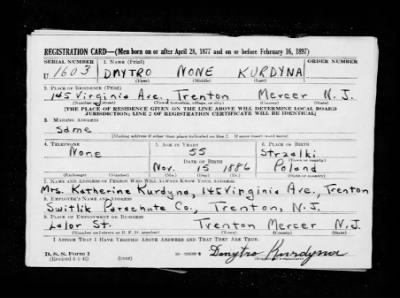 REGISTRATION CARD—(Men born on or after April 28, 1877 and on or before February 16, 1897)
SERIAL NUMBER 1. NAME (Print) ORDER NUMBER
U 1603 DMYTRO NONE KURDYNA
(First) (Middle) (Last)
2. PLACE OF RESIDENCE (Print)
145 Virginia Ave., Trenton Mercer N. J.
(Number and street) (Town, township, village, or city) (County) (State)
[THE PLACE OF RESIDENCE GIVEN ON THE LINE ABOVE WILL DETERMINE LOCAL BOARD
JURISDICTION; LINE 2 OF REGISTRATION CERTIFICATE WILL BE IDENTICAL]
3. MAILING ADDRESS
Same
[Mailing address if other than place indicated on line 2. If same insert word same]
4. TELEPHONE 5. AGE IN YEARS 6. PLACE OF BIRTH
None 55 Strzelki
DATE OF BIRTH (Town or county)
Nov. 15 1886 Poland
(Exchange) (Number) (Mo.) (Day) (Yr.) (State or country)
7. NAME AND ADDRESS OF PERSON WHO WILL ALWAYS KNOW YOUR ADDRESS
Mrs. Katherine Kurdyna, 145 Virginia Ave., Trenton
8. EMPLOYER'S NAME AND ADDRESS
Switlik Parachute Co., Trenton, N. J.
9. PLACE OF EMPLOYMENT OR BUSINESS
Lalor St. Trenton Mercer N. J.
(Number and street or R. F. D. number) (Town) (County) (State)
I AFFIRM THAT I HAVE VERIFIED ABOVE ANSWERS AND THAT THEY ARE TRUE.
D. S. S. Form 1 Dmytro Kurdyna